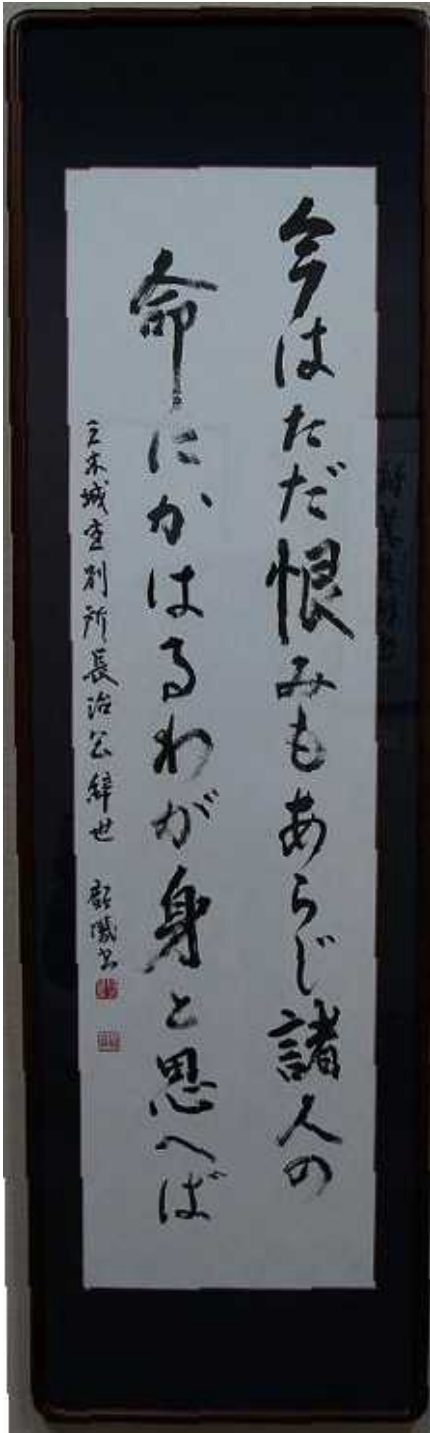 今はただ恨みもあらじ諸人の
命にかはるわが身と思へば
三木城主別所長治公辞世